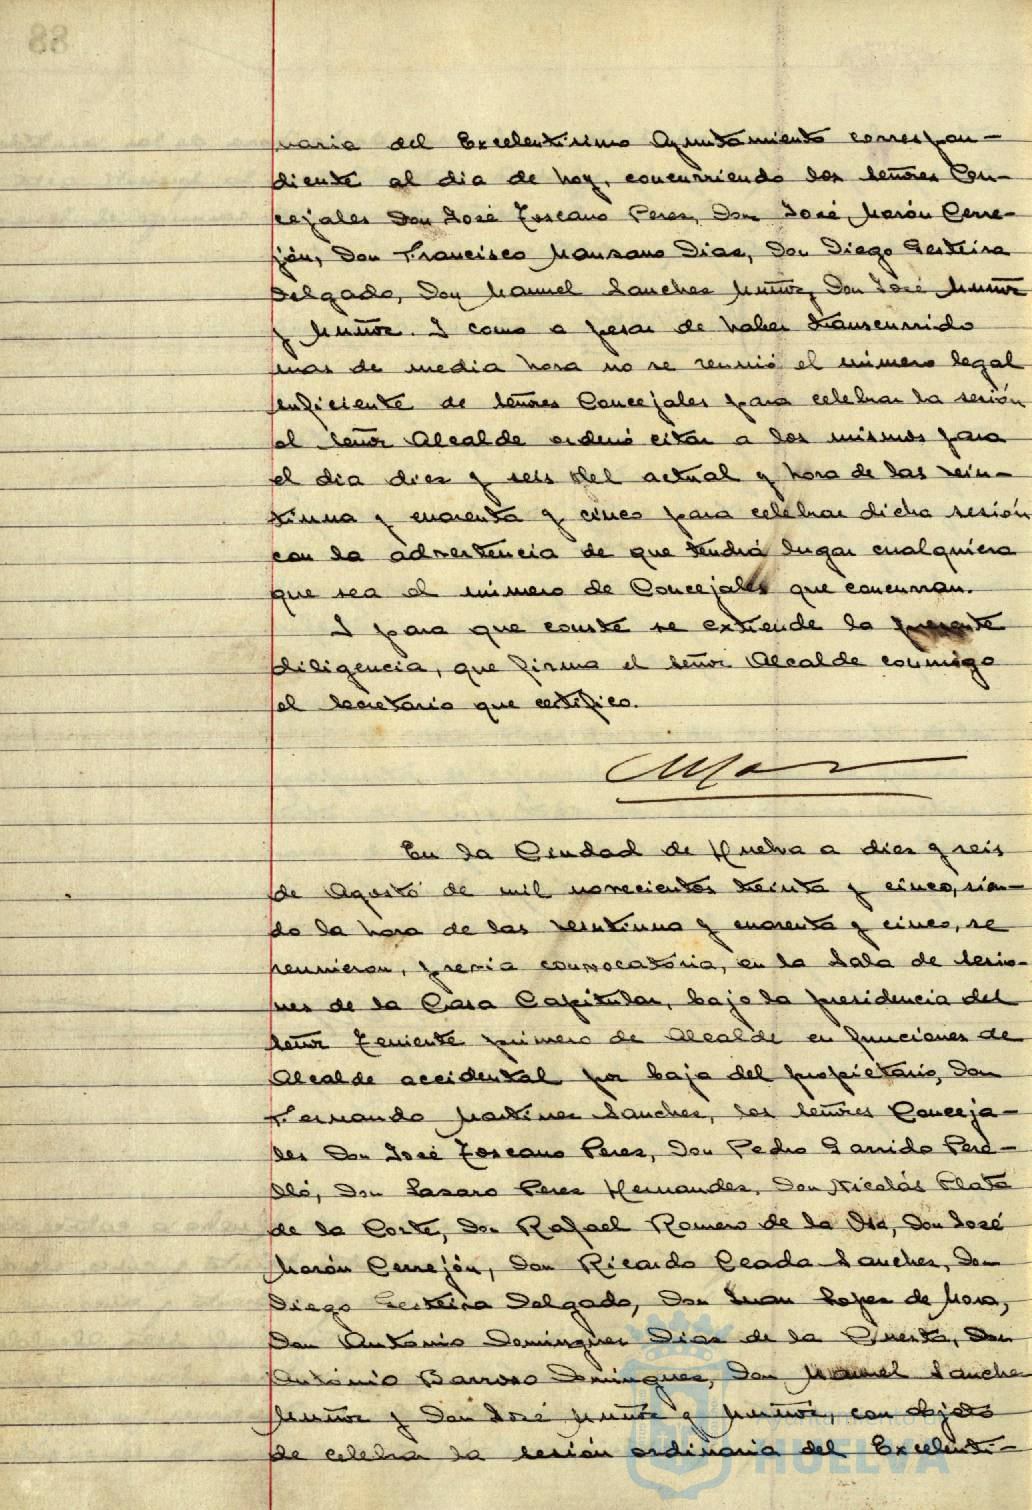 88
naria del Excelentísimo Ayuntamiento correspon-
diente al dia de hoy, concurriendo los señores Con-
cejales Don José Toscano Perez, Don José Marón Cerre-
jón, Don Francisco Manzano Dias, Don Diego Gesteira
Delgado, Don Manuel Sanchez Muñoz, Don José Muñoz
y Muñoz. I como a pesar de haber transcurrido
mas de media hora no se reunió el número legal
suficiente de señores Concejales para celebrar la sesión
el Señor Alcalde ordenó citar a los mismos para
el dia diez y seis del actual y hora de las vein-
tiuna y cuarenta y cinco para celebrar dicha sesión
con la advertencia de que tendrá lugar cualquiera
que sea el número de Concejales que concurran.
I para que conste se extiende la presente
diligencia, que firma el señor Alcalde conmigo
el Secretario que certifico.
En la Ciudad de Huelva a diez y seis
de Agosto de mil novecientos treinta y cinco, sien-
do la hora de las veintiuna y cuarenta y cinco, se
reunieron, previa convocatoria, en la Sala de Sesio-
nes de la Casa Capitular, bajo la presidencia del
Señor Teniente primero de Alcalde en funciones de
Alcalde accidental por baja del propietario, Don
Fernando Martinez Sanchez, los señores Conceja-
les Don José Toscano Perez, Don Pedro Garrido Pere-
lló, Don Lazaro Perez Hernandez, Don Nicolás Plata
de la Corte, Don Rafael Romero de la Osa, Don José
Marón Cerrejón, Don Ricardo Ceada Sanchez, Don
Diego Gesteira Delgado, Don Juan Lopez de Mora,
Don Antonio Dominguez Dias de la Puente, Don
Antonio Barroso Dominguez, Don Manuel Sanchez
Muñoz y Don José Muñoz y Muñoz, con objeto
de celebrar la sesión ordinaria del Excelentí-
HUELVA